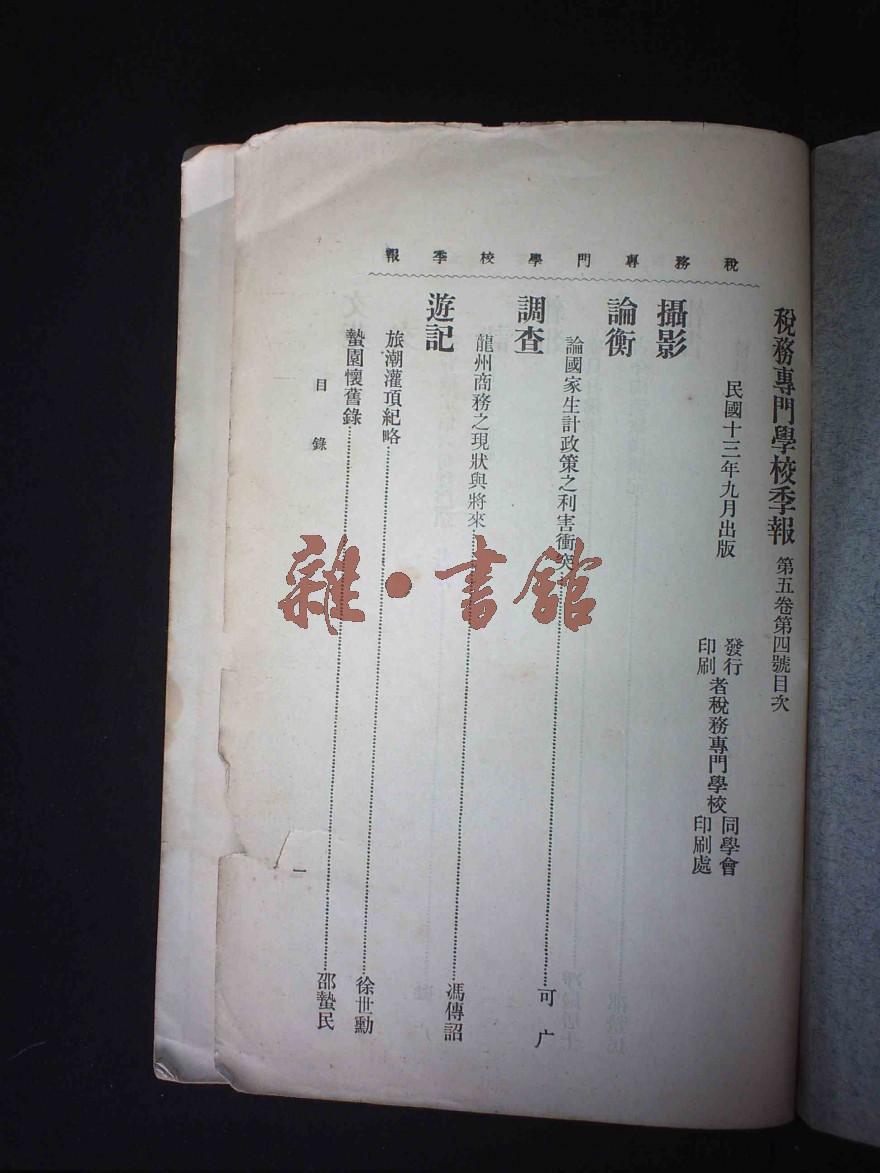 稅務專門學校季報
稅務專門學校季報 第五卷第四號目次
民國十三年九月出版
發行印刷者稅務專門學校同學會印刷處
攝影
論衡
論國家生計政策之利害衝突……可广
調查
龍州商務之現狀與將來……馮傳詔
遊記
旅潮灌頂紀略……徐世勳
蟄園懷舊錄……邵蟄民
目錄
一
雜·書館